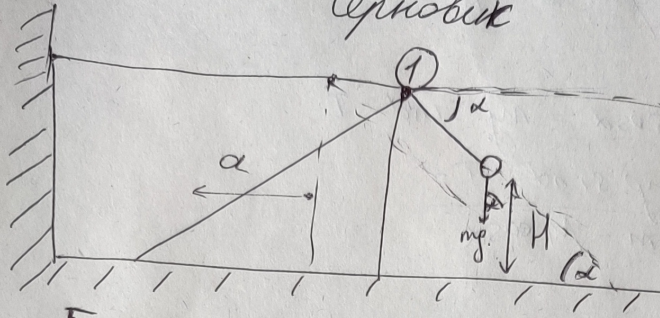 Черновик
1
α
a
mg
α
H
α